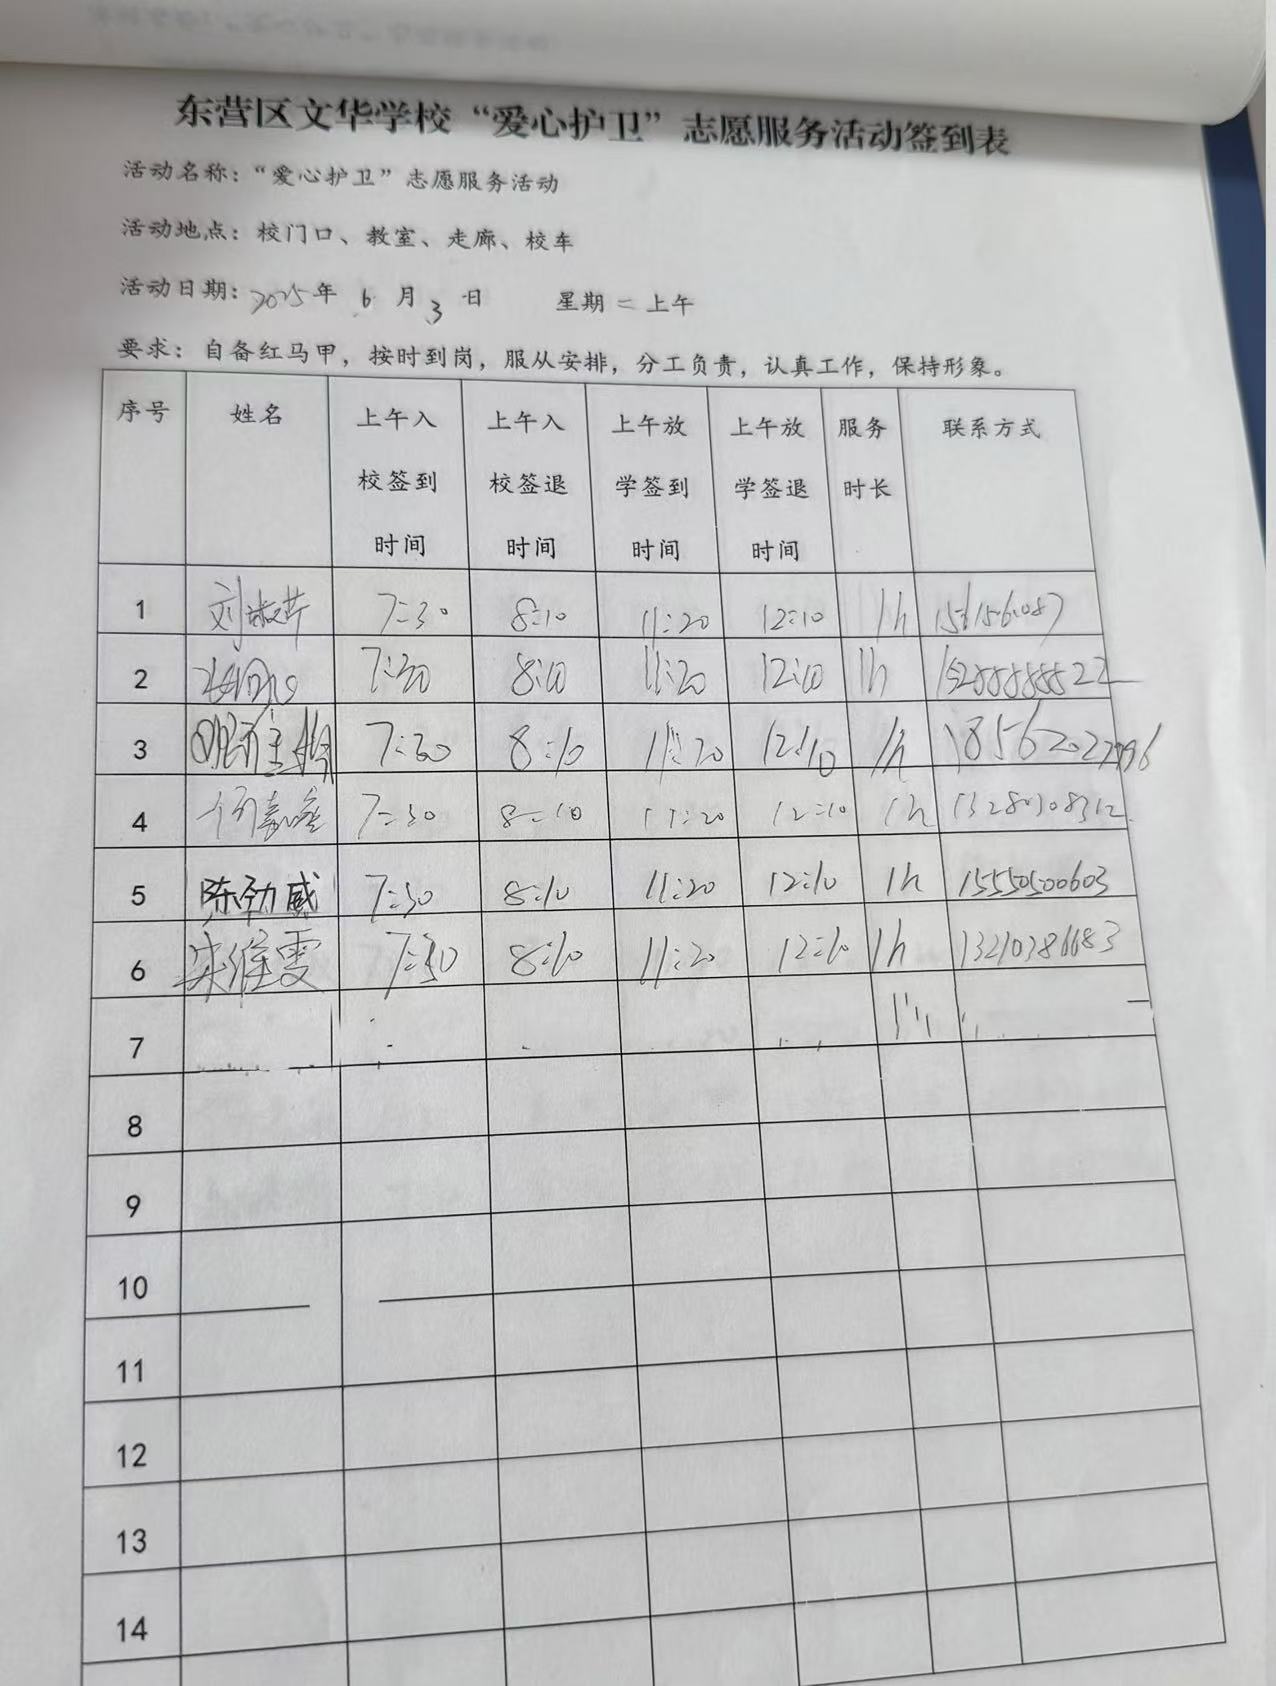 东营区文华学校“爱心护卫”志愿服务活动签到表
活动名称：“爱心护卫”志愿服务活动
活动地点：校门口、教室、走廊、校车
活动日期：2025年 6 月 3 日 星期二上午
要求：自备红马甲，按时到岗，服从安排，分工负责，认真工作，保持形象。
序号 姓名 上午入校签到时间 上午入校签退时间 上午放学签到时间 上午放学签退时间 服务时长 联系方式
1 刘淑芹 7:30 8:10 11:20 12:10 1h
2 7:30 8:10 11:20 12:10 1h
3 7:30 8:10 11:20 12:10 1h
4 7:30 8:10 11:20 12:10 1h
5 陈劲威 7:30 8:10 11:20 12:10 1h 15550500603
6 宋维雯 7:30 8:10 11:20 12:10 1h 13210386683
7
8
9
10
11
12
13
14